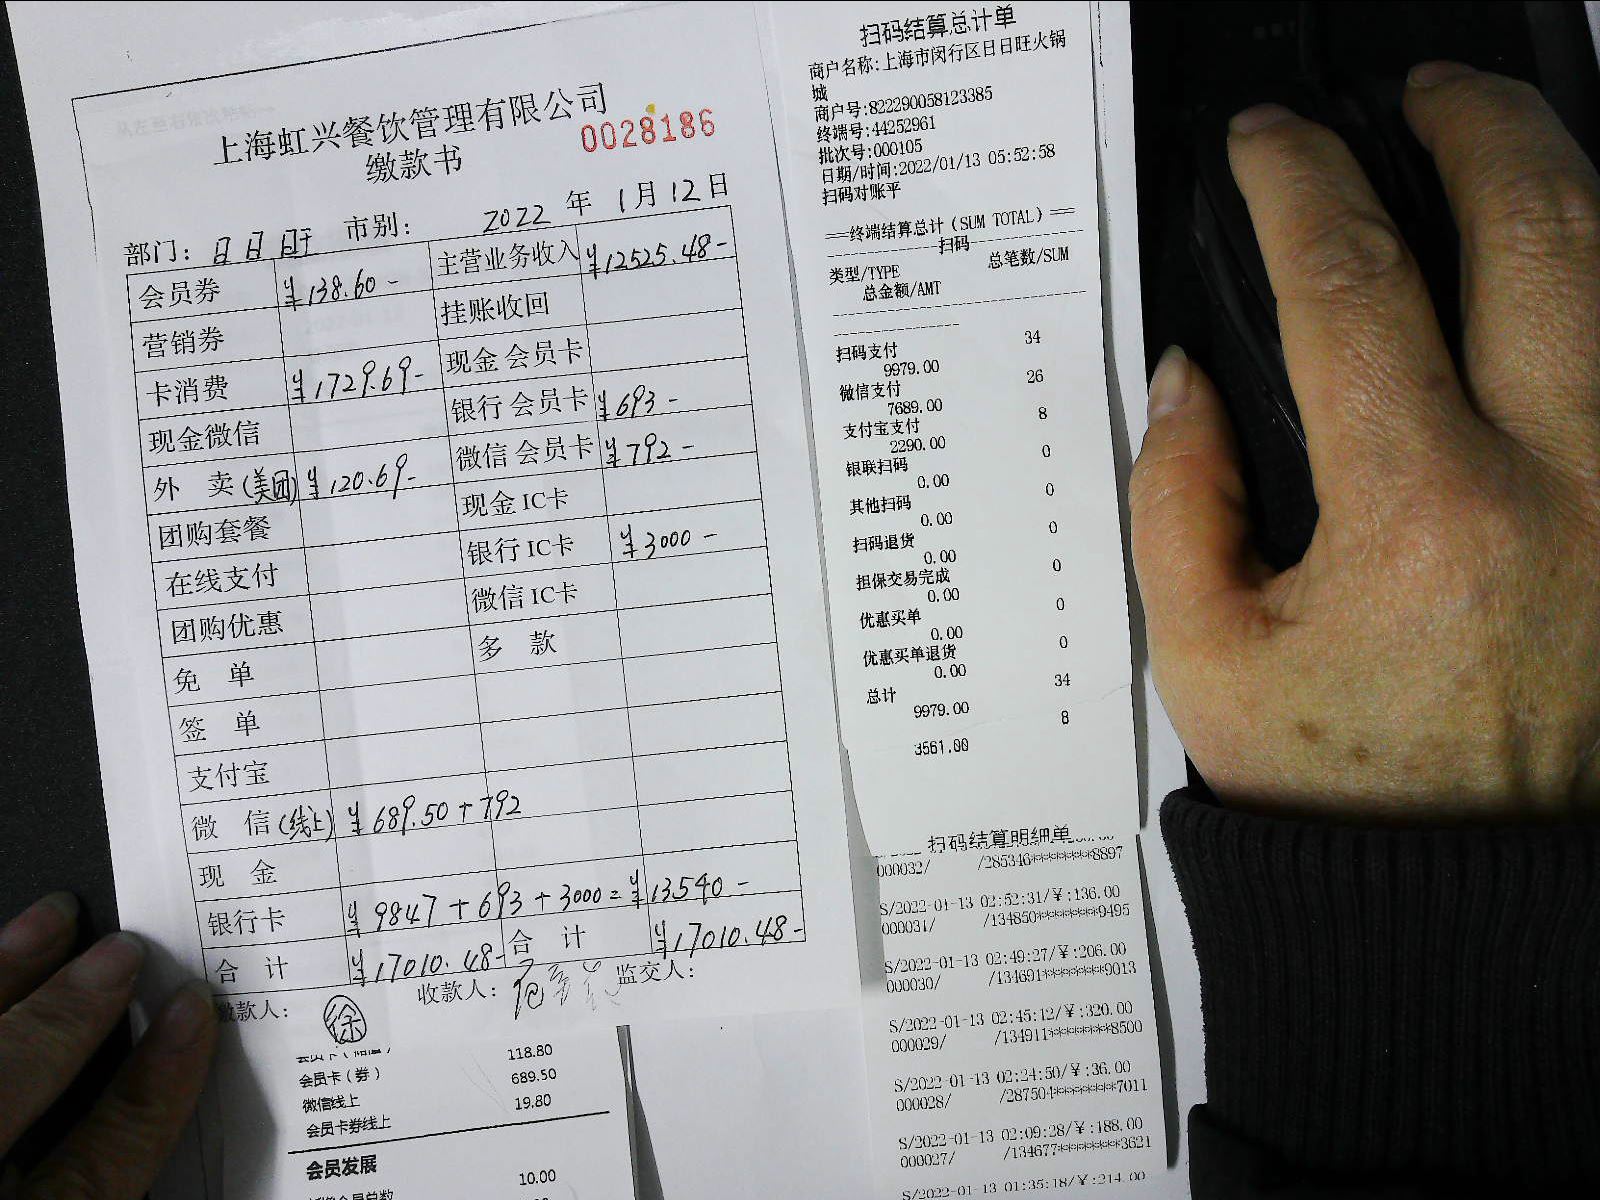 上海虹兴餐饮管理有限公司
缴款书
0028186
部门: 日日旺 市别: 2022 年 1月12日
会员券 ¥138.60- 主营业务收入 ¥12525.48-
营销券 挂账收回
卡消费 ¥1729.69- 现金会员卡
现金微信 银行会员卡 ¥693-
外 卖(美团) ¥120.69- 微信会员卡 ¥792-
团购套餐 现金IC卡
在线支付 银行IC卡 ¥3000-
团购优惠 微信IC卡
免 单 多 款
签 单
支付宝
微 信(线上) ¥689.50+792
现 金
银行卡 ¥9847+693+3000=¥13540-
合 计 ¥17010.48- 合 计 ¥17010.48-
缴款人: 徐 收款人: 监交人:
118.80
会员卡(券) 689.50
微信线上 19.80
会员卡券线上
会员发展
10.00
扫码结算总计单
商户名称:上海市闵行区日日旺火锅
城
商户号:822290058123385
终端号:44252961
批次号:000105
日期/时间:2022/01/13 05:52:58
扫码对账平
===终端结算总计(SUM TOTAL)===
扫码
类型/TYPE 总笔数/SUM
总金额/AMT
扫码支付 34
9979.00
微信支付 26
7689.00
支付宝支付 8
2290.00
银联扫码 0
0.00
其他扫码 0
0.00
扫码退货 0
0.00
担保交易完成 0
0.00
优惠买单 0
0.00
优惠买单退货 0
0.00
总计 34
9979.00
8
3561.00
扫码结算明细单
000032/ /285346********8897
S/2022-01-13 02:52:31/¥:136.00
000031/ /134850********9495
S/2022-01-13 02:49:27/¥:206.00
000030/ /134691********9013
S/2022-01-13 02:45:12/¥:320.00
000029/ /134911********8500
S/2022-01-13 02:24:50/¥:36.00
000028/ /287504********7011
S/2022-01-13 02:09:28/¥:188.00
000027/ /134677********3621
S/2022-01-13 01:35:18/¥:214.00